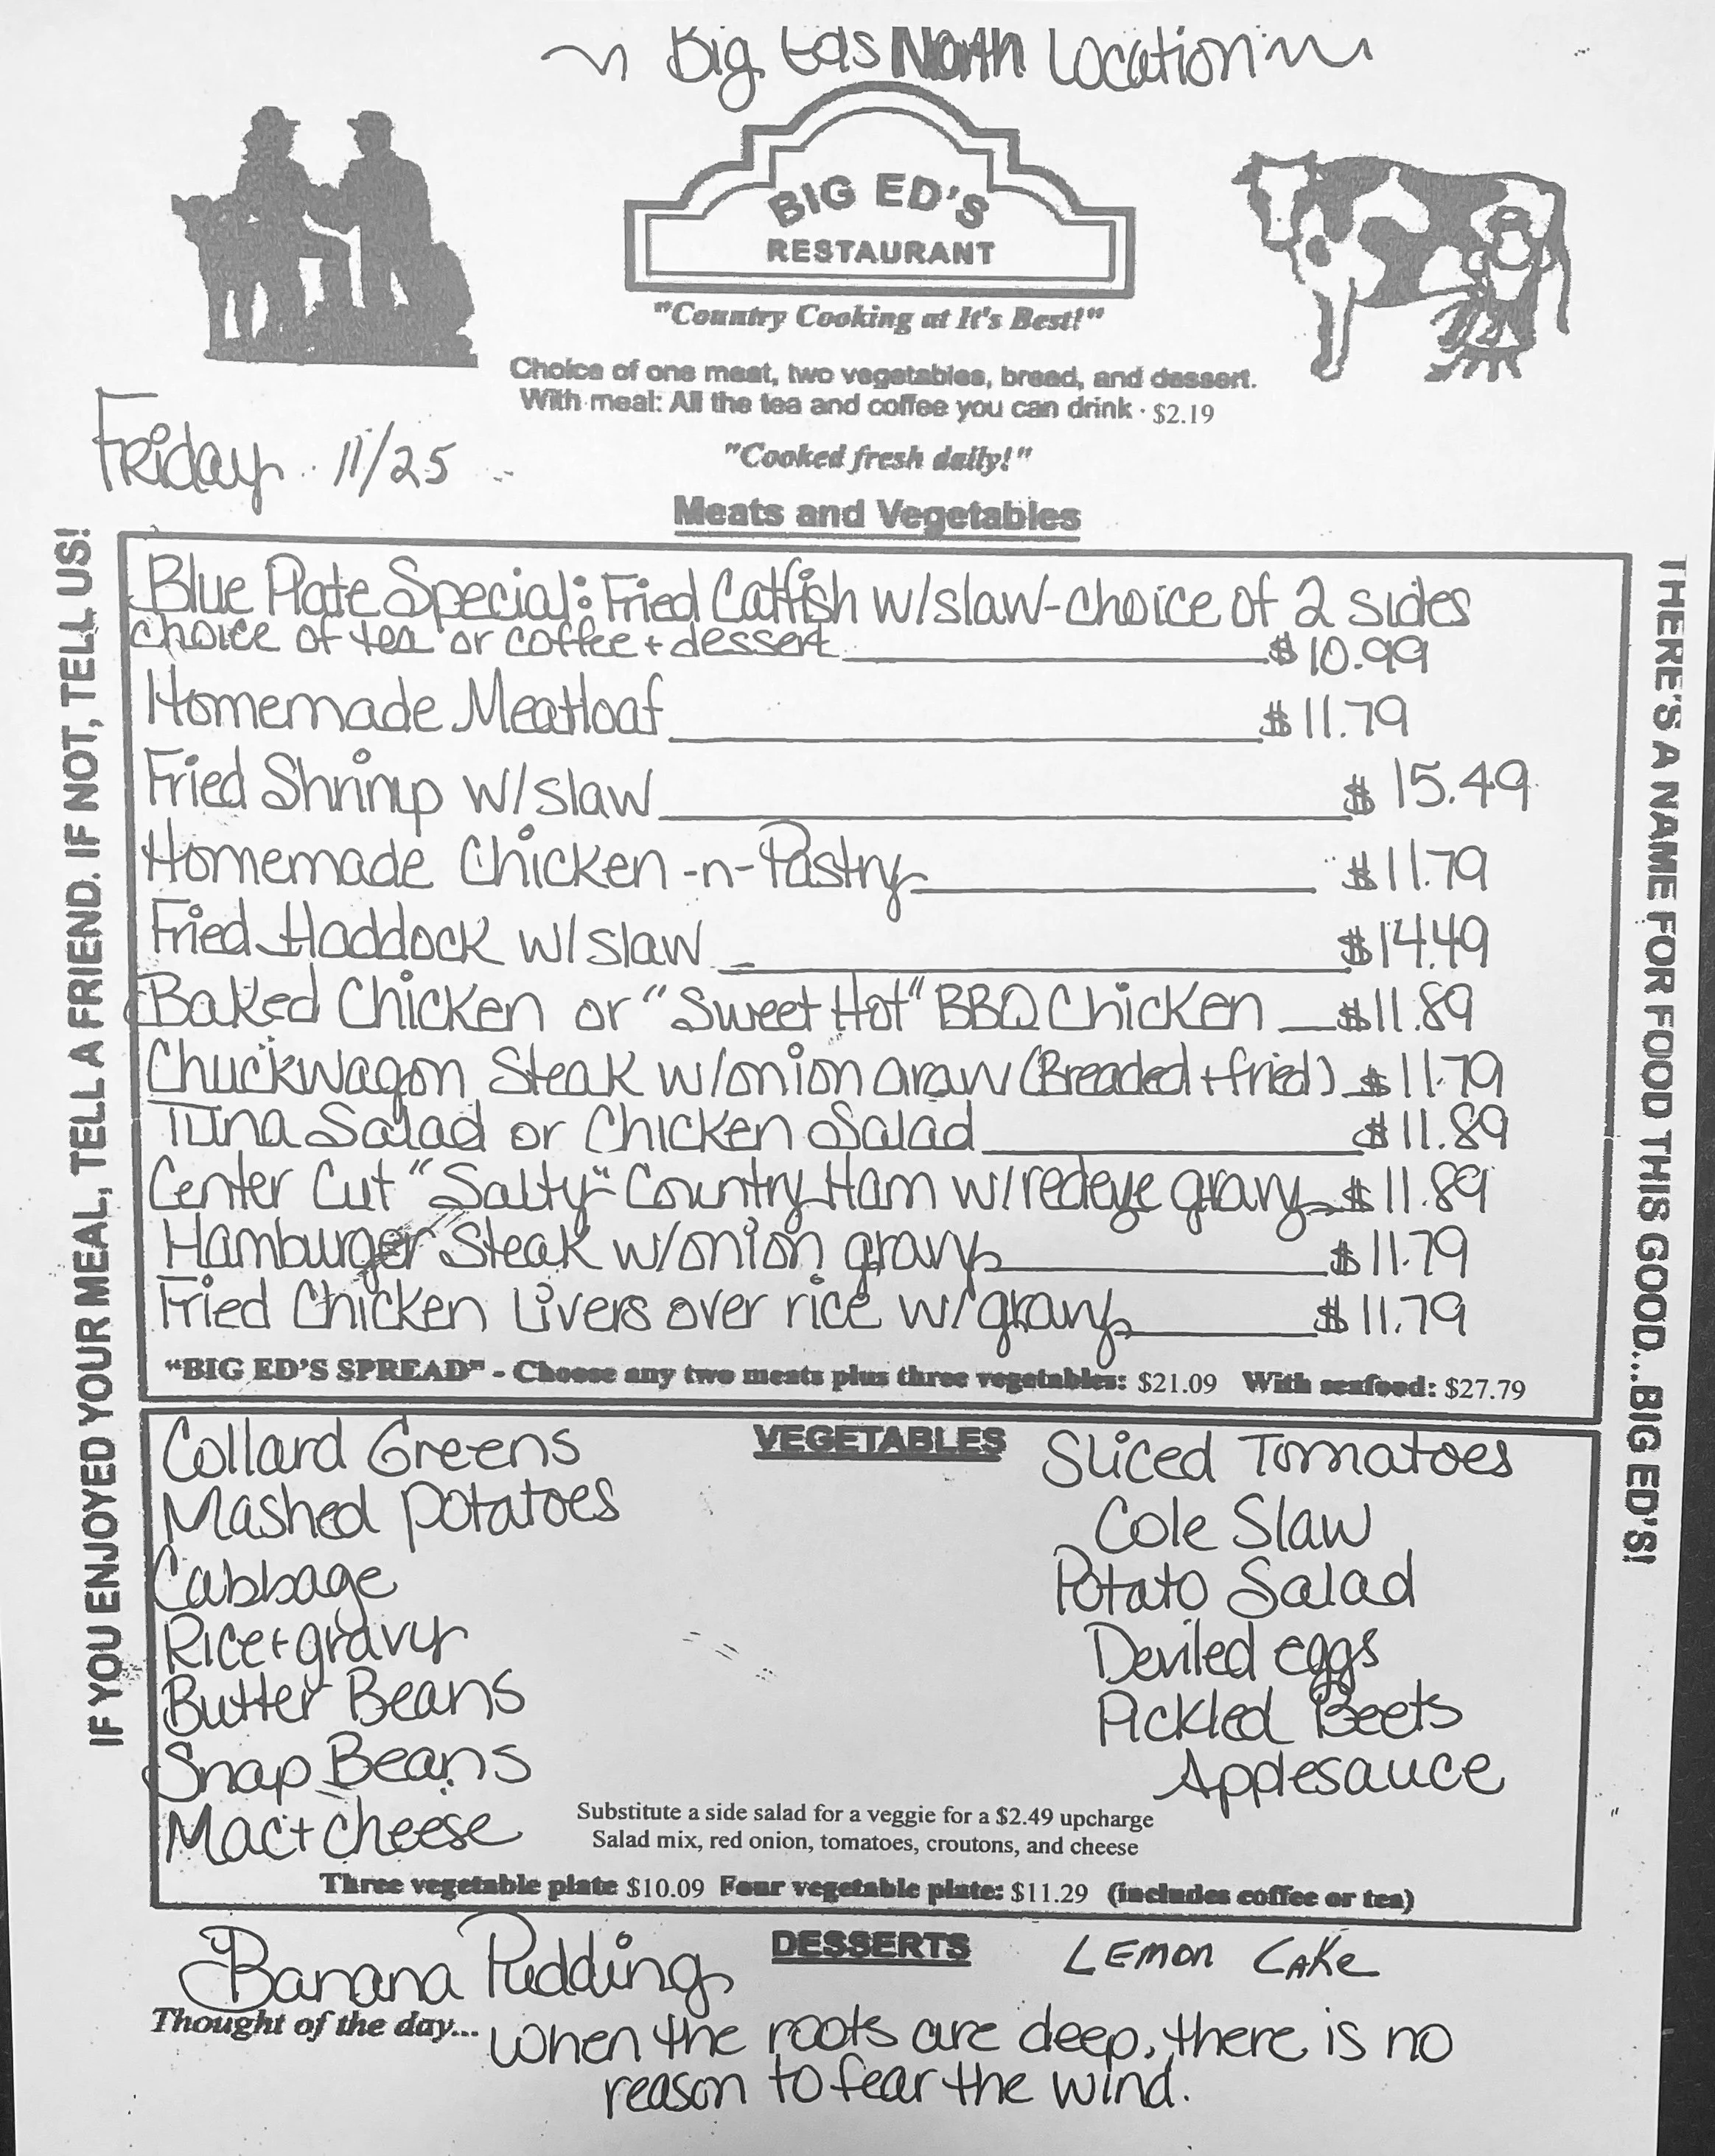 ~ Big Eds North Location ~
BIG ED'S
RESTAURANT
"Country Cooking at It's Best!"
Choice of one meat, two vegetables, bread, and dessert.
With meal: All the tea and coffee you can drink · $2.19
Friday 11/25
"Cooked fresh daily!"
Meats and Vegetables
IF YOU ENJOYED YOUR MEAL, TELL A FRIEND. IF NOT, TELL US!
THERE'S A NAME FOR FOOD THIS GOOD...BIG ED'S!
Blue Plate Special: Fried Catfish w/slaw-choice of 2 sides
choice of tea or coffee + dessert $10.99
Homemade Meatloaf $11.79
Fried Shrimp w/slaw $15.49
Homemade Chicken-n-Pastry $11.79
Fried Haddock w/slaw $14.49
Baked Chicken or "Sweet Hot" BBQ Chicken $11.89
Chuckwagon Steak w/onion gravy (Breaded + fried) $11.79
Tuna Salad or Chicken Salad $11.89
Center Cut "Salty" Country Ham w/redeye gravy $11.89
Hamburger Steak w/onion gravy $11.79
Fried Chicken Livers over rice w/gravy $11.79
"BIG ED'S SPREAD" - Choose any two meats plus three vegetables: $21.09 With seafood: $27.79
VEGETABLES
Collard Greens
Mashed potatoes
Cabbage
Rice + gravy
Butter Beans
Snap Beans
Mac + cheese
Sliced Tomatoes
Cole Slaw
Potato Salad
Deviled eggs
Pickled Beets
Applesauce
Substitute a side salad for a veggie for a $2.49 upcharge
Salad mix, red onion, tomatoes, croutons, and cheese
Three vegetable plate $10.09 Four vegetable plate: $11.29 (includes coffee or tea)
DESSERTS
Banana Pudding
LEMON CAKE
Thought of the day... When the roots are deep, there is no
reason to fear the wind.